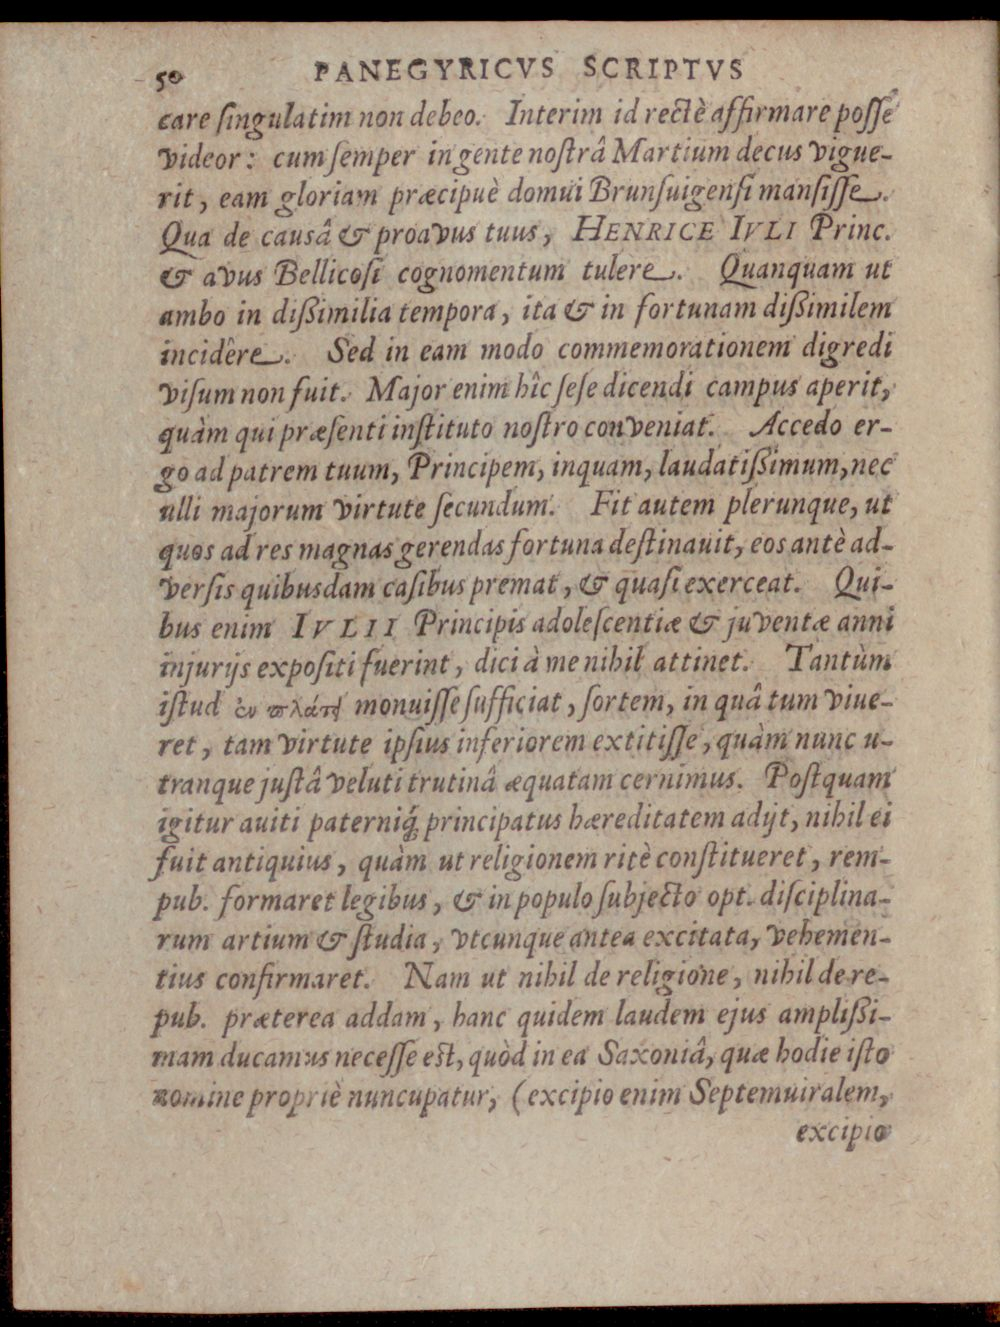 50 PANEGYRICVS SCRIPTVS
care ſingulatim non debeo. Interim id rectè affirmare poſſe
videor: cum ſemper in gente noſtrâ Martium decus vigue-
rit, eam gloriam præcipuè domui Brunſuigenſi manſiſſe.
Qua de causâ & proavus tuus, HENRICE IVLI Princ.
& avus Bellicoſi cognomentum tulere. Quanquam ut
ambo in dißimilia tempora, ita & in fortunam dißimilem
incidêre. Sed in eam modo commemorationem digredi
viſum non fuit. Major enim hîc ſeſe dicendi campus aperit,
quàm qui præſenti inſtituto noſtro conveniat. Accedo er-
go ad patrem tuum, Principem, inquam, laudatißimum, nec
ulli majorum virtute ſecundum. Fit autem plerunque, ut
quos ad res magnas gerendas fortuna deſtinauit, eos antè ad-
verſis quibusdam caſibus premat, & quaſi exerceat. Qui-
bus enim IVLII Principis adoleſcentiæ & juventæ anni
injurijs expoſiti fuerint, dici à me nihil attinet. Tantùm
iſtud ἐν πλάτει monuiſſe ſufficiat, ſortem, in quâ tum viue-
ret, tam virtute ipſius inferiorem extitiſſe, quàm nunc u-
tranque juſtâ veluti trutinâ æquatam cernimus. Poſtquam
igitur auiti paterniq́; principatus hæreditatem adijt, nihil ei
fuit antiquius, quàm ut religionem ritè conſtitueret, rem-
pub. formaret legibus, & in populo ſubjecto opt. diſciplina-
rum artium & ſtudia, vtcunque antea excitata, vehemen-
tius confirmaret. Nam ut nihil de religione, nihil de re-
pub. præterea addam, hanc quidem laudem ejus amplißi-
mam ducamus neceſſe eſt, quòd in ea Saxoniâ, quæ hodie iſto
nomine propriè nuncupatur, (excipio enim Septemuiralem,
excipio